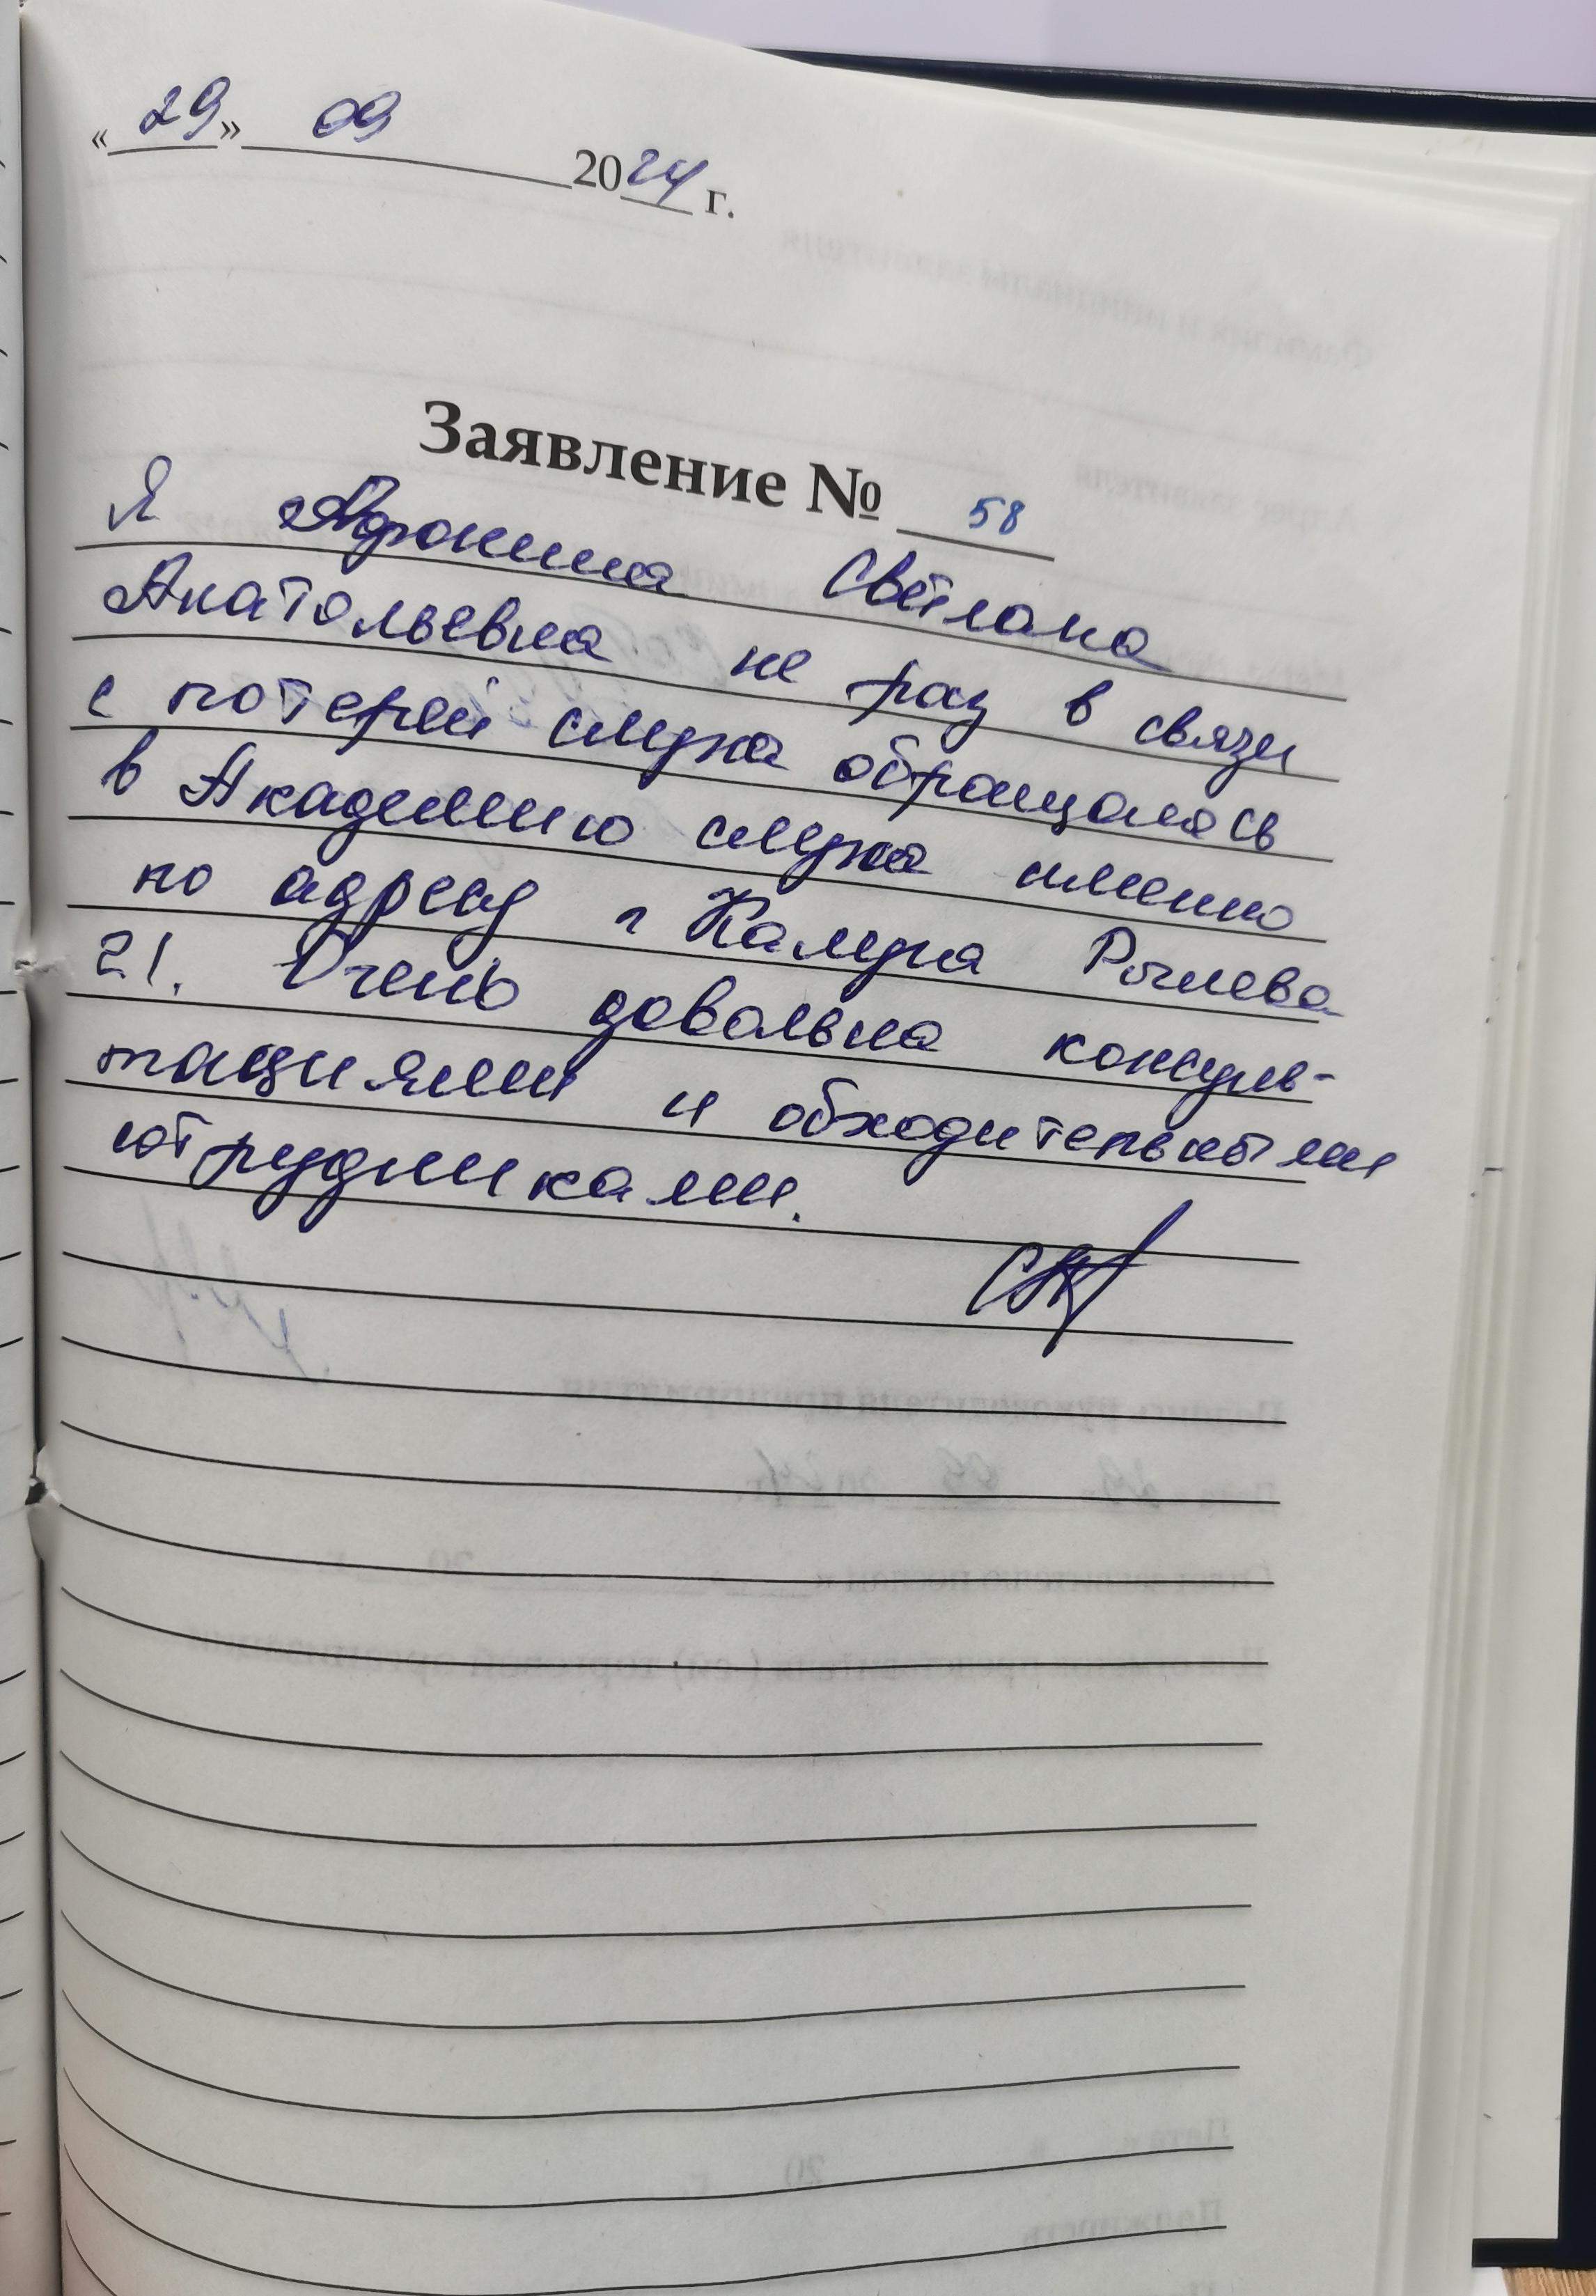 «29» 09 2024 г.
Заявление № 58
Я Афонина Светлана
Анатольевна не раз в связи
с потерей слуха обращалась
в Академию слуха именно
по адресу г Калуга Рылева
21. Очень довольна консуль-
тациями и обходительными
сотрудниками.